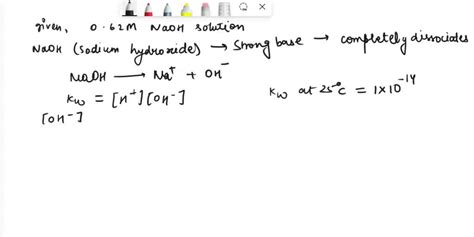 given, 0.62M NaOH solution
NaOH (sodium hydroxide) → Strong base → completely dissociates
NaOH → Na⁺ + OH⁻
Kw = [H⁺][OH⁻] Kw at 25°C = 1×10⁻¹⁴
[OH⁻]